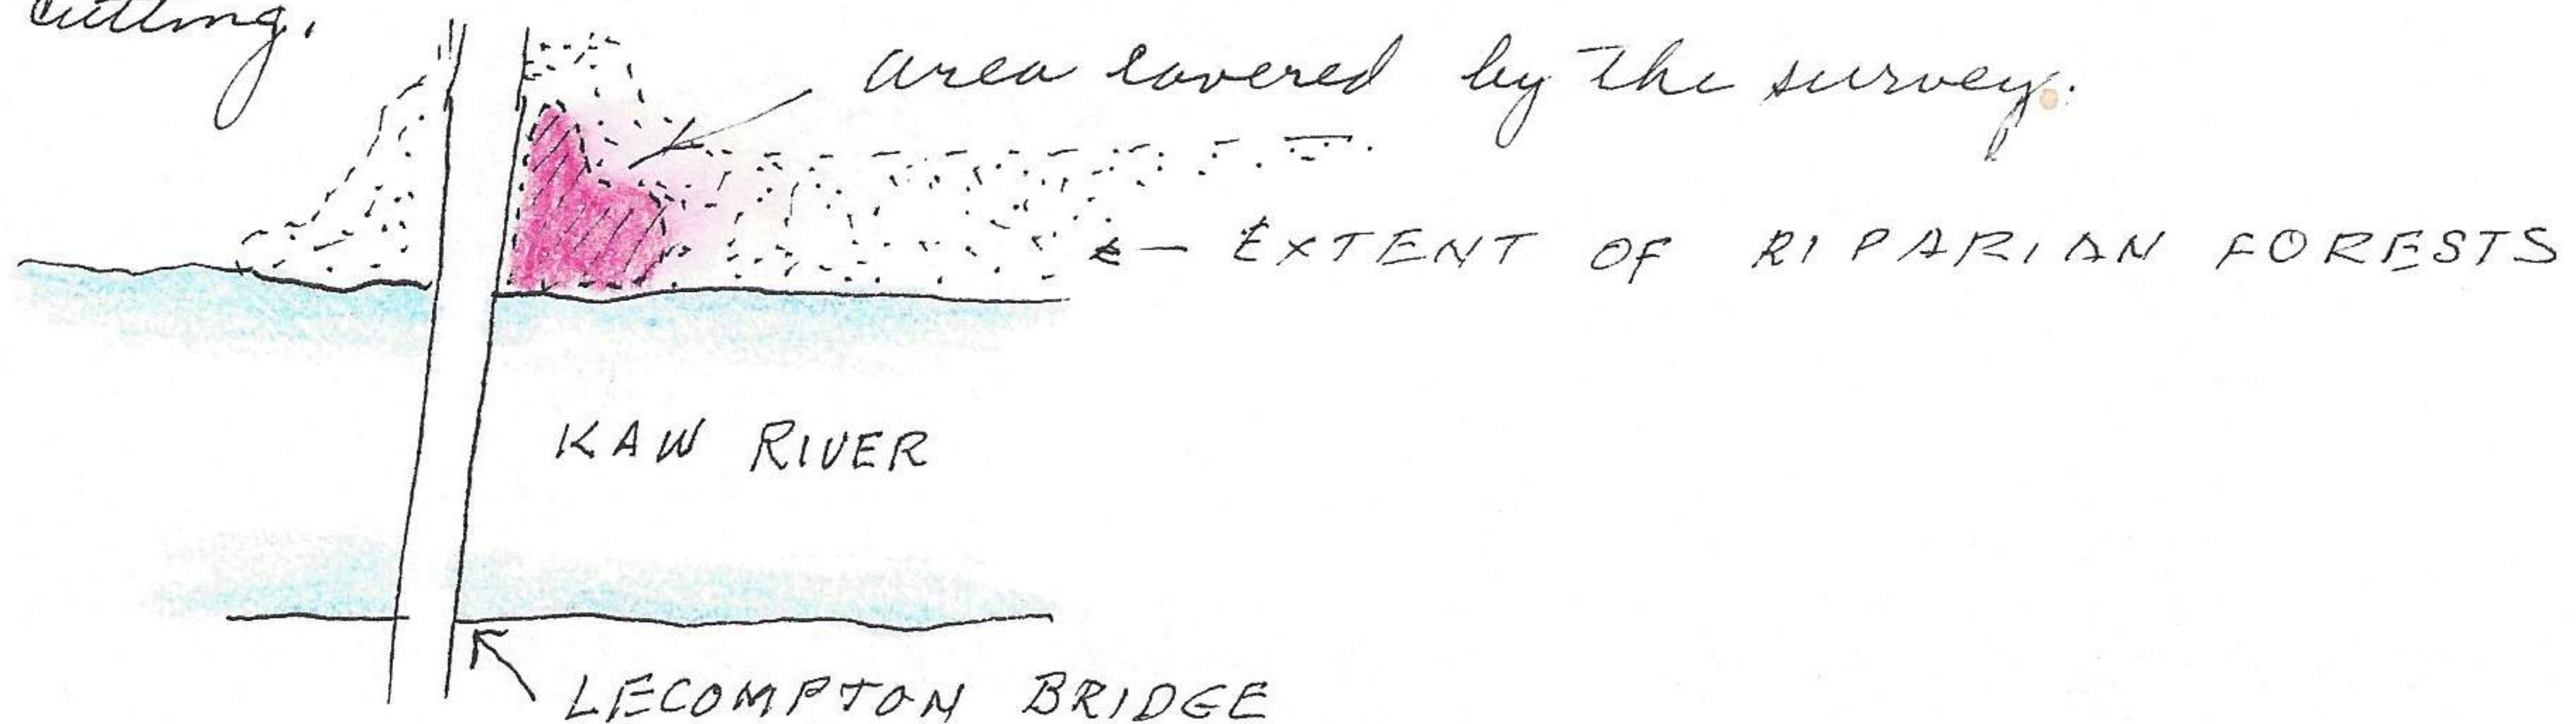 cutting.
area covered by the survey.
← EXTENT OF RIPARIAN FORESTS
KAW RIVER
LECOMPTON BRIDGE